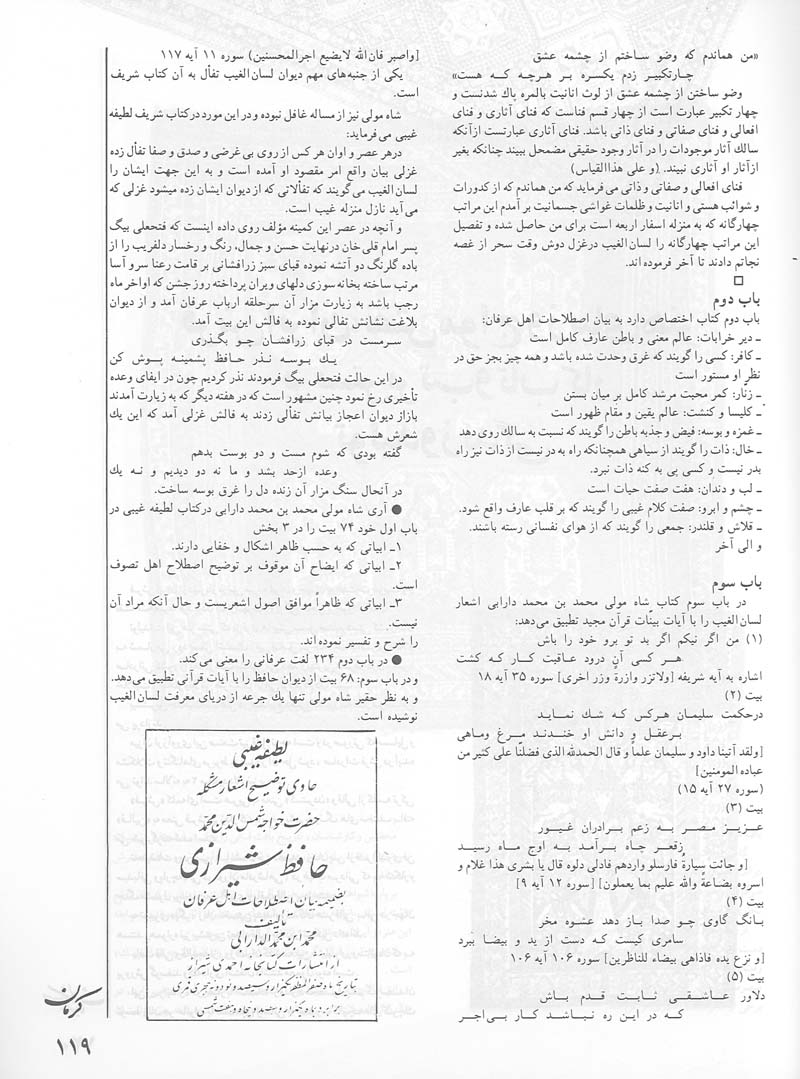 «من هماندم که وضو ساختم از چشمه عشق
چارتکبیر زدم یکسره بر هرچه که هست»
وضو ساختن از چشمه عشق از لوث انانیت بالمره پاك شدنست و
چهار تکبیر عبارت است از چهار قسم فناست که فنای آثاری و فنای
افعالی و فنای صفاتی و فنای ذاتی باشد. فنای آثاری عبارتست ازآنکه
سالك آثار موجودات را در آثار وجود حقیقی مضمحل ببیند چنانکه بغیر
ازآثار او آثاری نبیند. (و علی هذاالقیاس)
فنای افعالی و صفاتی و ذاتی می فرماید که من هماندم که از کدورات
و شوائب هستی و انانیت و ظلمات غواشی جسمانیت بر آمدم این مراتب
چهارگانه که به منزله اسفار اربعه است برای من حاصل شده و تفصیل
این مراتب چهارگانه را لسان الغیب درغزل دوش وقت سحر از غصه
نجاتم دادند تا آخر فرموده اند.
□
باب دوم
باب دوم کتاب اختصاص دارد به بیان اصطلاحات اهل عرفان:
ـ دیر خرابات: عالم معنی و باطن عارف کامل است
ـ کافر: کسی را گویند که غرق وحدت شده باشد و همه چیز بجز حق در
نظر او مستور است
ـ زنّار: کمر محبت مرشد کامل بر میان بستن
ـ کلیسا و کنشت: عالم یقین و مقام ظهور است
ـ غمزه و بوسه: فیض و جذبه باطن را گویند که نسبت به سالك روی دهد
ـ خال: ذات را گویند از سیاهی همچنانکه راه به در نیست از ذات نیز راه
بدر نیست و کسی پی به کنه ذات نبرد.
ـ لب و دندان: هفت صفت حیات است
ـ چشم و ابرو: صفت کلام غیبی را گویند که بر قلب عارف واقع شود.
ـ قلاش و قلندر: جمعی را گویند که از هوای نفسانی رسته باشند.
و الی آخر
باب سوم
در باب سوم کتاب شاه مولی محمد بن محمد دارابی اشعار
لسان الغیب را با آیات بیّنات قرآن مجید تطبیق می‌دهد:
(۱) من اگر نیکم اگر بد تو برو خود را باش
هر کسی آن درود عاقبت کار که کشت
اشاره به آیه شریفه [ولاتزر وازرة وزر اخری] سوره ۳۵ آیه ۱۸
بیت (۲)
درحکمت سلیمان هرکس که شك نماید
برعقل و دانش او خندند مرغ وماهی
[ولقد آتینا داود و سلیمان علماً و قال الحمدلله الذی فضلنا علی کثیر من
عباده المومنین]
(سوره ۲۷ آیه ۱۵)
بیت (۳)
عزیز مصر به زعم برادران غیور
زقعر چاه برآمد به اوج ماه رسید
[و جائت سیارة فارسلو واردهم فادلی دلوه قال یا بشری هذا غلام و
اسروه بضاعةً والله علیم بما یعملون] [سوره ۱۲ آیه ۹]
بیت (۴)
بانگ گاوی چو صدا باز دهد عشوه مخر
سامری کیست که دست از ید و بیضا ببرد
[و نزع یده فاذاهی بیضاء للناظرین] سوره ۱۰۶ آیه ۱۰۶
بیت (۵)
دلاور عاشقی ثابت قدم باش
که در این ره نباشد کار بی‌اجر
[واصبر فان‌الله لایضیع اجرالمحسنین) سوره ۱۱ آیه ۱۱۷
یکی از جنبه‌های مهم دیوان لسان الغیب تفأل به آن کتاب شریف
است.
شاه مولی نیز از مساله غافل نبوده و در این مورد درکتاب شریف لطیفه
غیبی می فرماید:
درهر عصر و اوان هر کس از روی بی غرضی و صدق و صفا تفأل زده
غزلی بیان واقع امر مقصود او آمده است و به این جهت ایشان را
لسان الغیب می گویند که تفألاتی که از دیوان ایشان زده میشود غزلی که
می آید نازل منزله غیب است.
و آنچه در عصر این کمینه مؤلف روی داده اینست که فتحعلی بیگ
پسر امام قلی خان درنهایت حسن و جمال، رنگ و رخسار دلفریب را از
باده گلرنگ دو آتشه نموده قبای سبز زرافشانی بر قامت رعنا سرو آسا
مرتب ساخته بخانه سوزی دلهای ویران پرداخته روز جشن که اواخر ماه
رجب باشد به زیارت مزار آن سرحلقه ارباب عرفان آمد و از دیوان
بلاغت نشانش تفالی نموده به فالش این بیت آمد.
سرمست در قبای زرافشان چو بگذری
یك بوسه نذر حافظ پشمینه پوش کن
در این حالت فتحعلی بیگ فرمودند نذر کردیم چون در ایفای وعده
تأخیری رخ نمود چنین مشهور است که در هفته دیگر که به زیارت آمدند
بازاز دیوان اعجاز بیانش تفألی زدند به فالش غزلی آمد که این یك
شعرش هست.
گفته بودی که شوم مست و دو بوست بدهم
وعده ازحد بشد و ما نه دو دیدیم و نه یك
در آنحال سنگ مزار آن زنده دل را غرق بوسه ساخت.
● آری شاه مولی محمد بن محمد دارابی درکتاب لطیفه غیبی در
باب اول خود ۷۴ بیت را در ۳ بخش
۱ـ ابیاتی که به حسب ظاهر اشکال و خفایی دارند.
۲ـ ابیاتی که ایضاح آن موقوف بر توضیح اصطلاح اهل تصوف
است.
۳ـ ابیاتی که ظاهراً موافق اصول اشعریست و حال آنکه مراد آن
نیست.
را شرح و تفسیر نموده اند.
● در باب دوم ۲۳۴ لغت عرفانی را معنی می‌کند.
و در باب سوم: ۶۸ بیت از دیوان حافظ را با آیات قرآنی تطبیق می‌دهد.
و به نظر حقیر شاه مولی تنها یك جرعه از دریای معرفت لسان الغیب
نوشیده است.
لطیفه غیبی
حاوی توضیح اشعار مشکله
حضرت خواجه شمس الدین محمد
حافظ شیرازی
بضمیمه بیان اصطلاحات اهل عرفان
تالیف
محمد ابن محمد الدارابی
از انتشارات کتابخانه احمدی شیراز
بتاریخ ماه صفرالمظفر یکهزار و سیصد و نود و نه هجری قمری
کرمان
۱۱۹